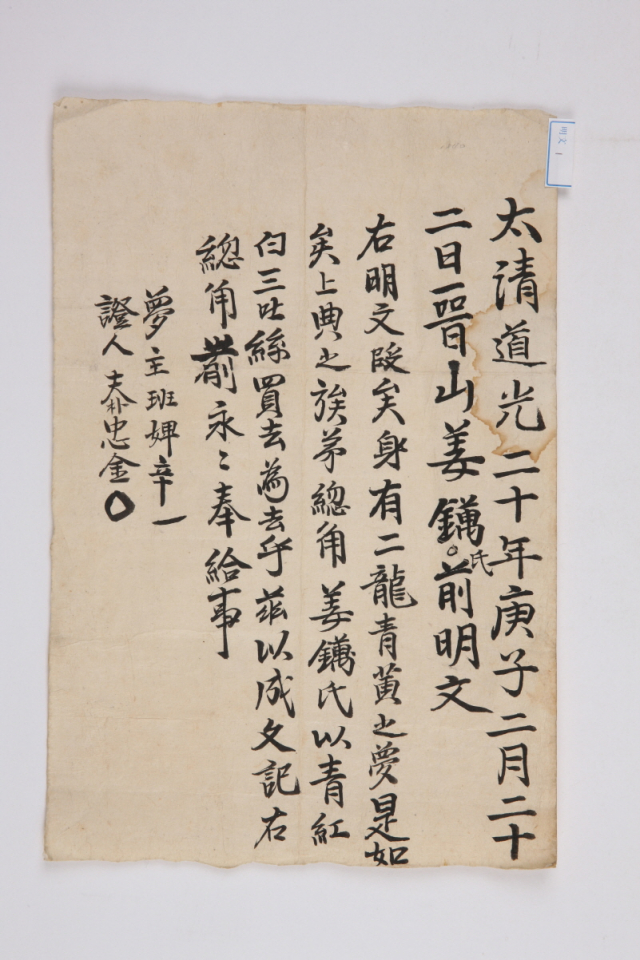 太清道光二十年庚子二月二十
二日晉山姜鏋氏前明文
右明文段矣身有二龍青黃之夢是如
矣上典之族茅總角姜鏋氏以青紅
白三吐絲買去為去乎茲以成文記右
總角前永〻奉給事
夢主班婢辛一
證人 朴忠金
明文 1